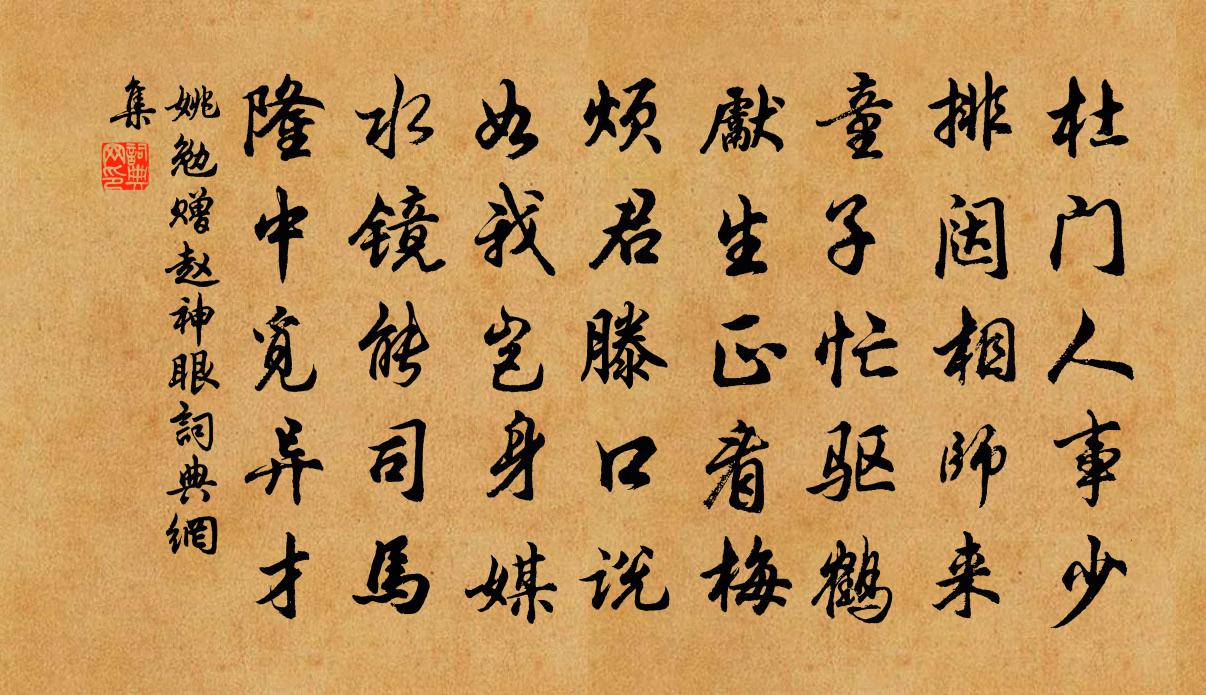 杜门人事少
排闼相师来
童子忙驱鹤
献生正看梅
烦君滕口说
如我岂身媒
水镜能司马
隆中觅异才
姚勉赠赵神眼詞典網
集
詞典
网印